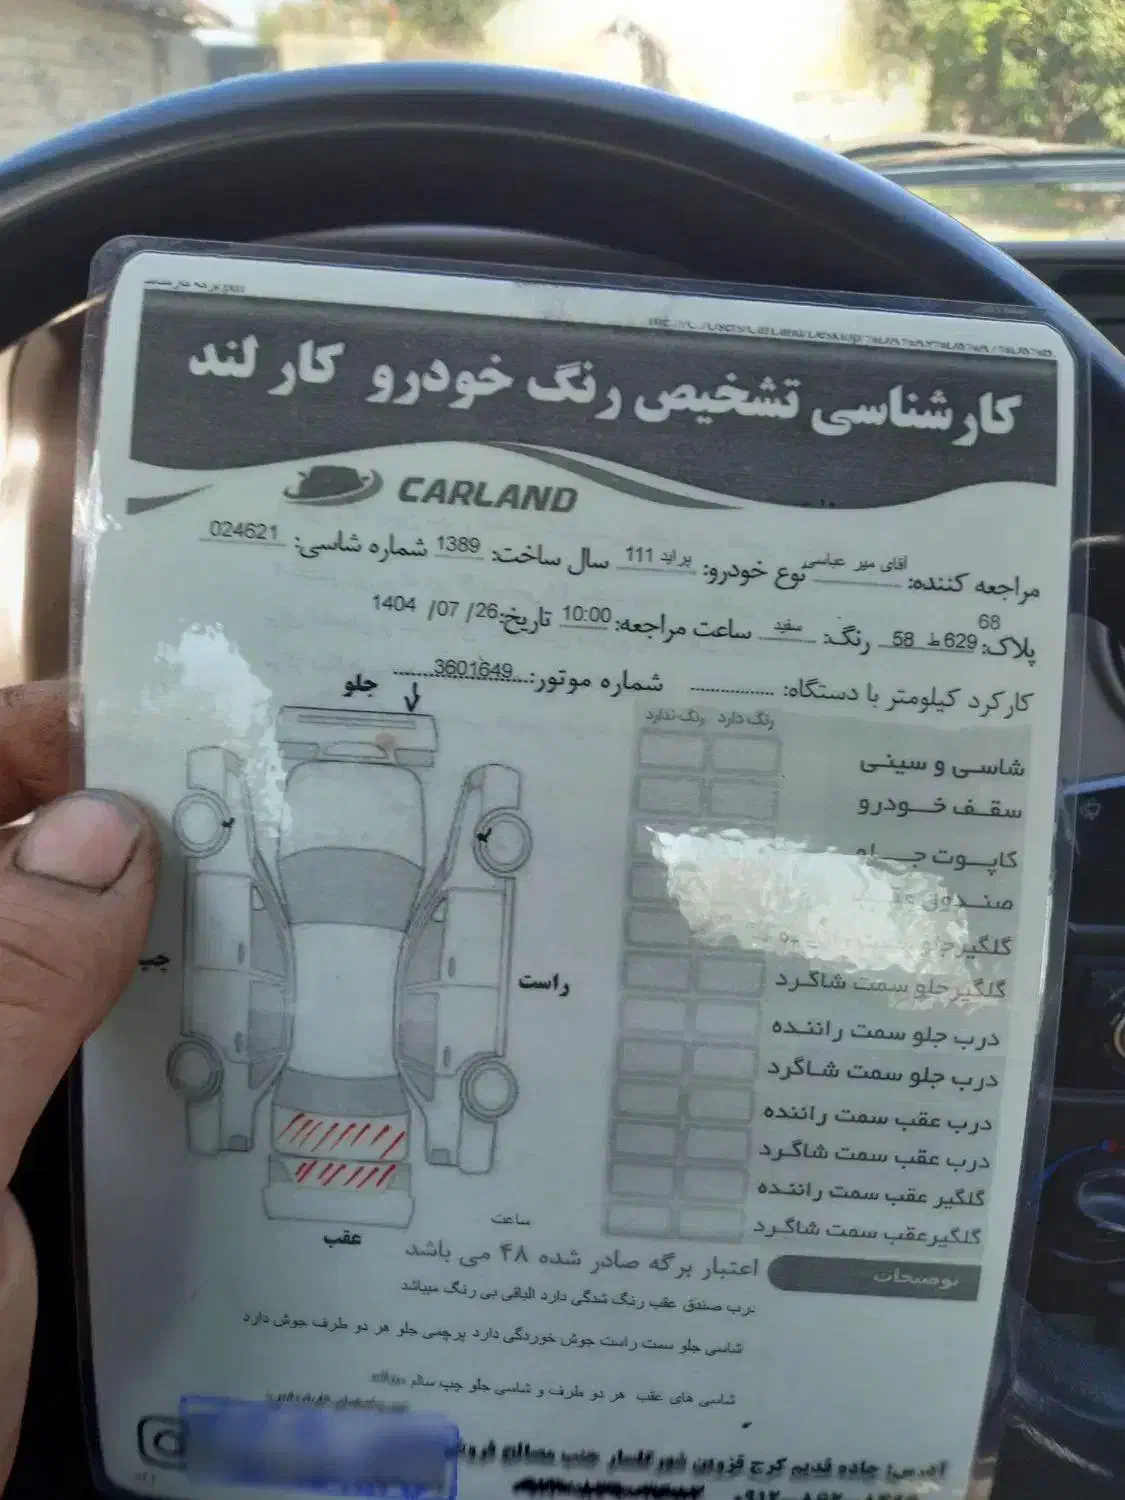 کارشناسی تشخیص رنگ خودرو کار لند
CARLAND
مراجعه کننده: آقای میر عباسی نوع خودرو: پراید 111 سال ساخت: 1389 شماره شاسی: 024621
پلاک: 68 629 ط 58 رنگ: سفید ساعت مراجعه: 10:00 تاریخ: 26/ 07/ 1404
کارکرد کیلومتر با دستگاه: شماره موتور: 3601649
جلو
رنگ دارد رنگ ندارد
شاسی و سینی
سقف خودرو
کاپوت جلو
صندوق عقب
گلگیر جلو سمت
گلگیر جلو سمت شاگرد
درب جلو سمت راننده
درب جلو سمت شاگرد
درب عقب سمت راننده
درب عقب سمت شاگرد
گلگیر عقب سمت راننده
گلگیر عقب سمت شاگرد
چپ
راست
عقب
ساعت
اعتبار برگه صادر شده ۴۸ می باشد
توضیحات
درب صندق عقب رنگ شدگی دارد الباقی بی رنگ میباشد
شاسی جلو سمت راست جوش خوردگی دارد پرچمی جلو هر دو طرف جوش دارد
شاسی های عقب هر دو طرف و شاسی جلو چپ سالم
آدرس: جاده قدیم کرج قزوین شهر گلسار جنب مصالح فروشی